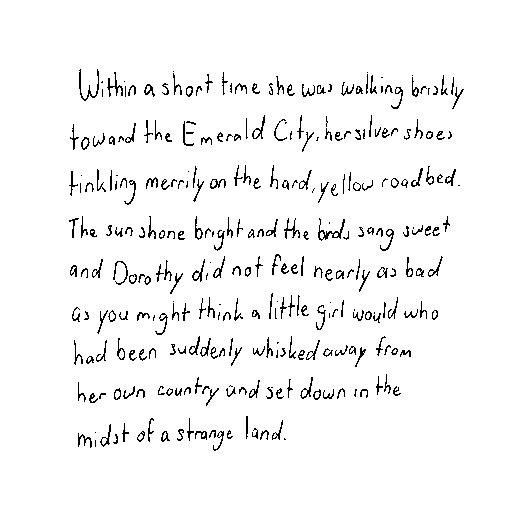 Within a short time she was walking briskly
toward the Emerald City, her silver shoes
tinkling merrily on the hard, yellow roadbed.
The sun shone bright and the birds sang sweet
and Dorothy did not feel nearly as bad
as you might think a little girl would who
had been suddenly whisked away from
her own country and set down in the
midst of a strange land.